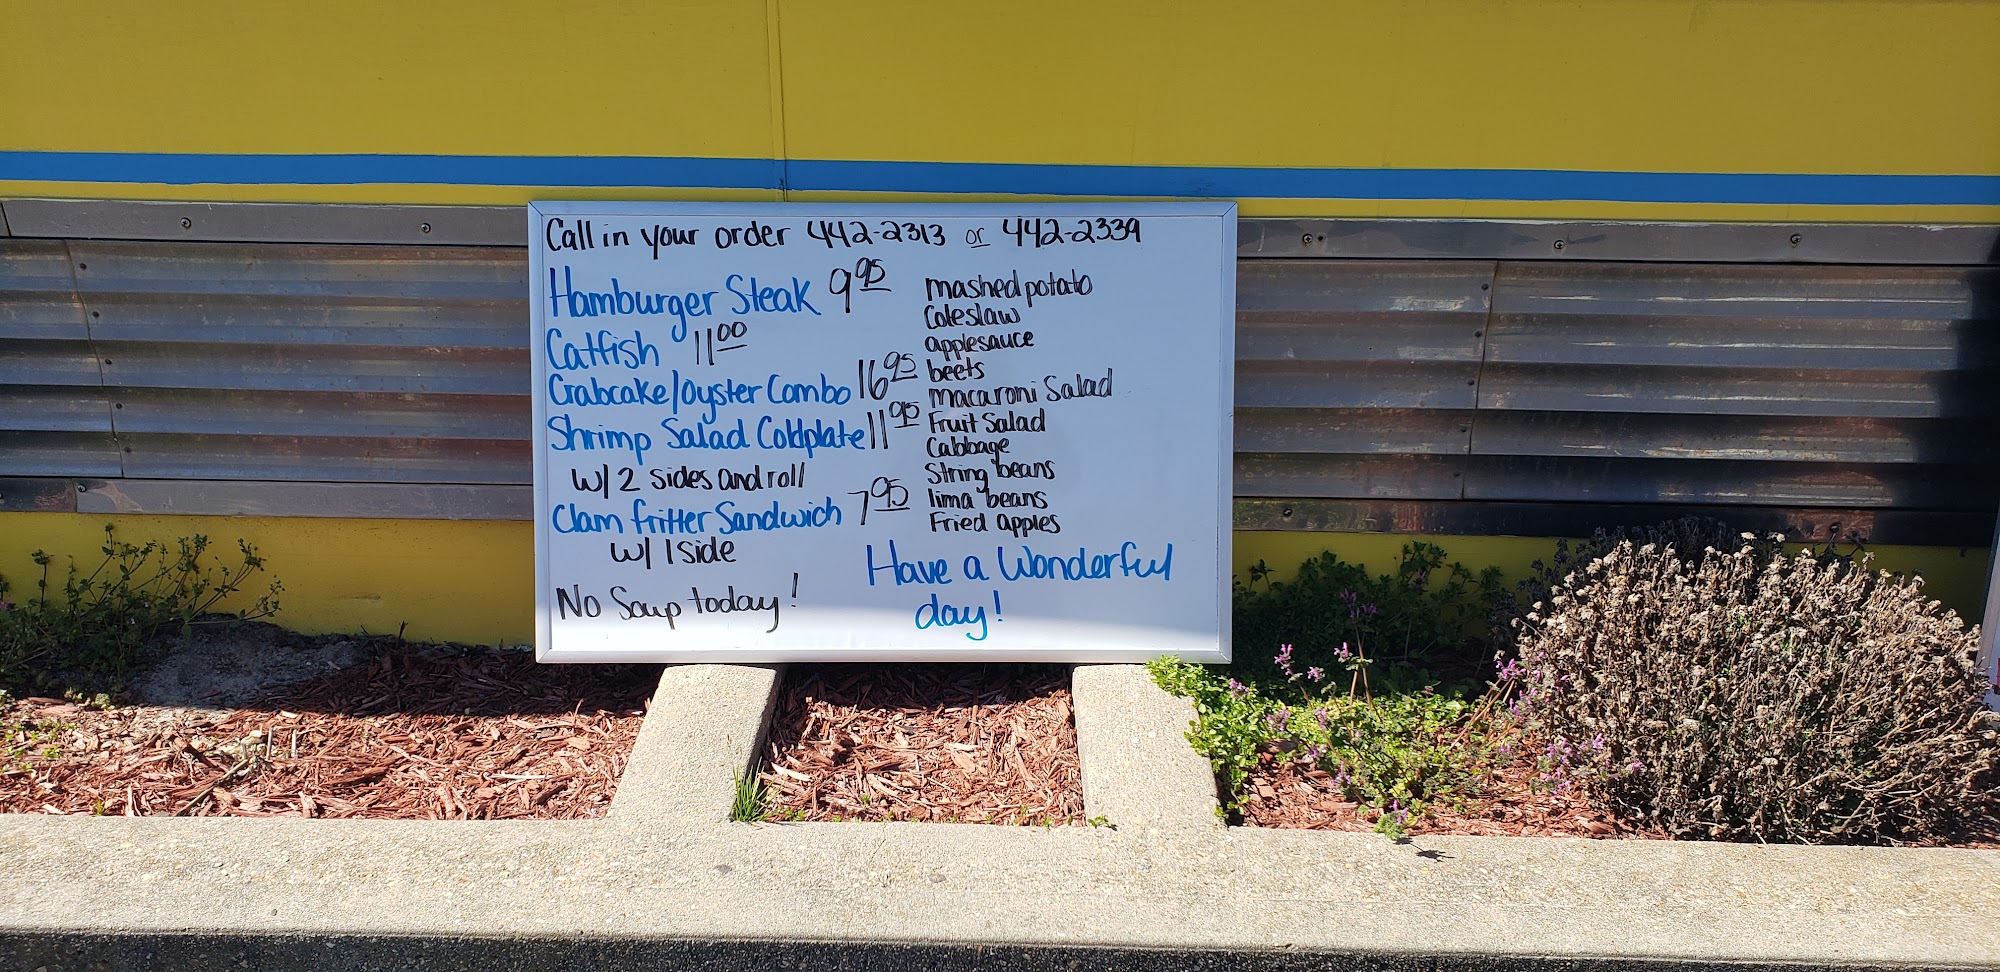 Call in your order 442-2313 or 442-2339
Hamburger Steak 9.95
Catfish 11.00
Crabcake/Oyster Combo 16.95
Shrimp Salad Coldplate 11.95
w/ 2 sides and roll
Clam fritter Sandwich 7.95
w/ 1 side
No Soup today!
mashed potato
Coleslaw
applesauce
beets
macaroni Salad
Fruit Salad
Cabbage
String beans
lima beans
Fried apples
Have a Wonderful
day!